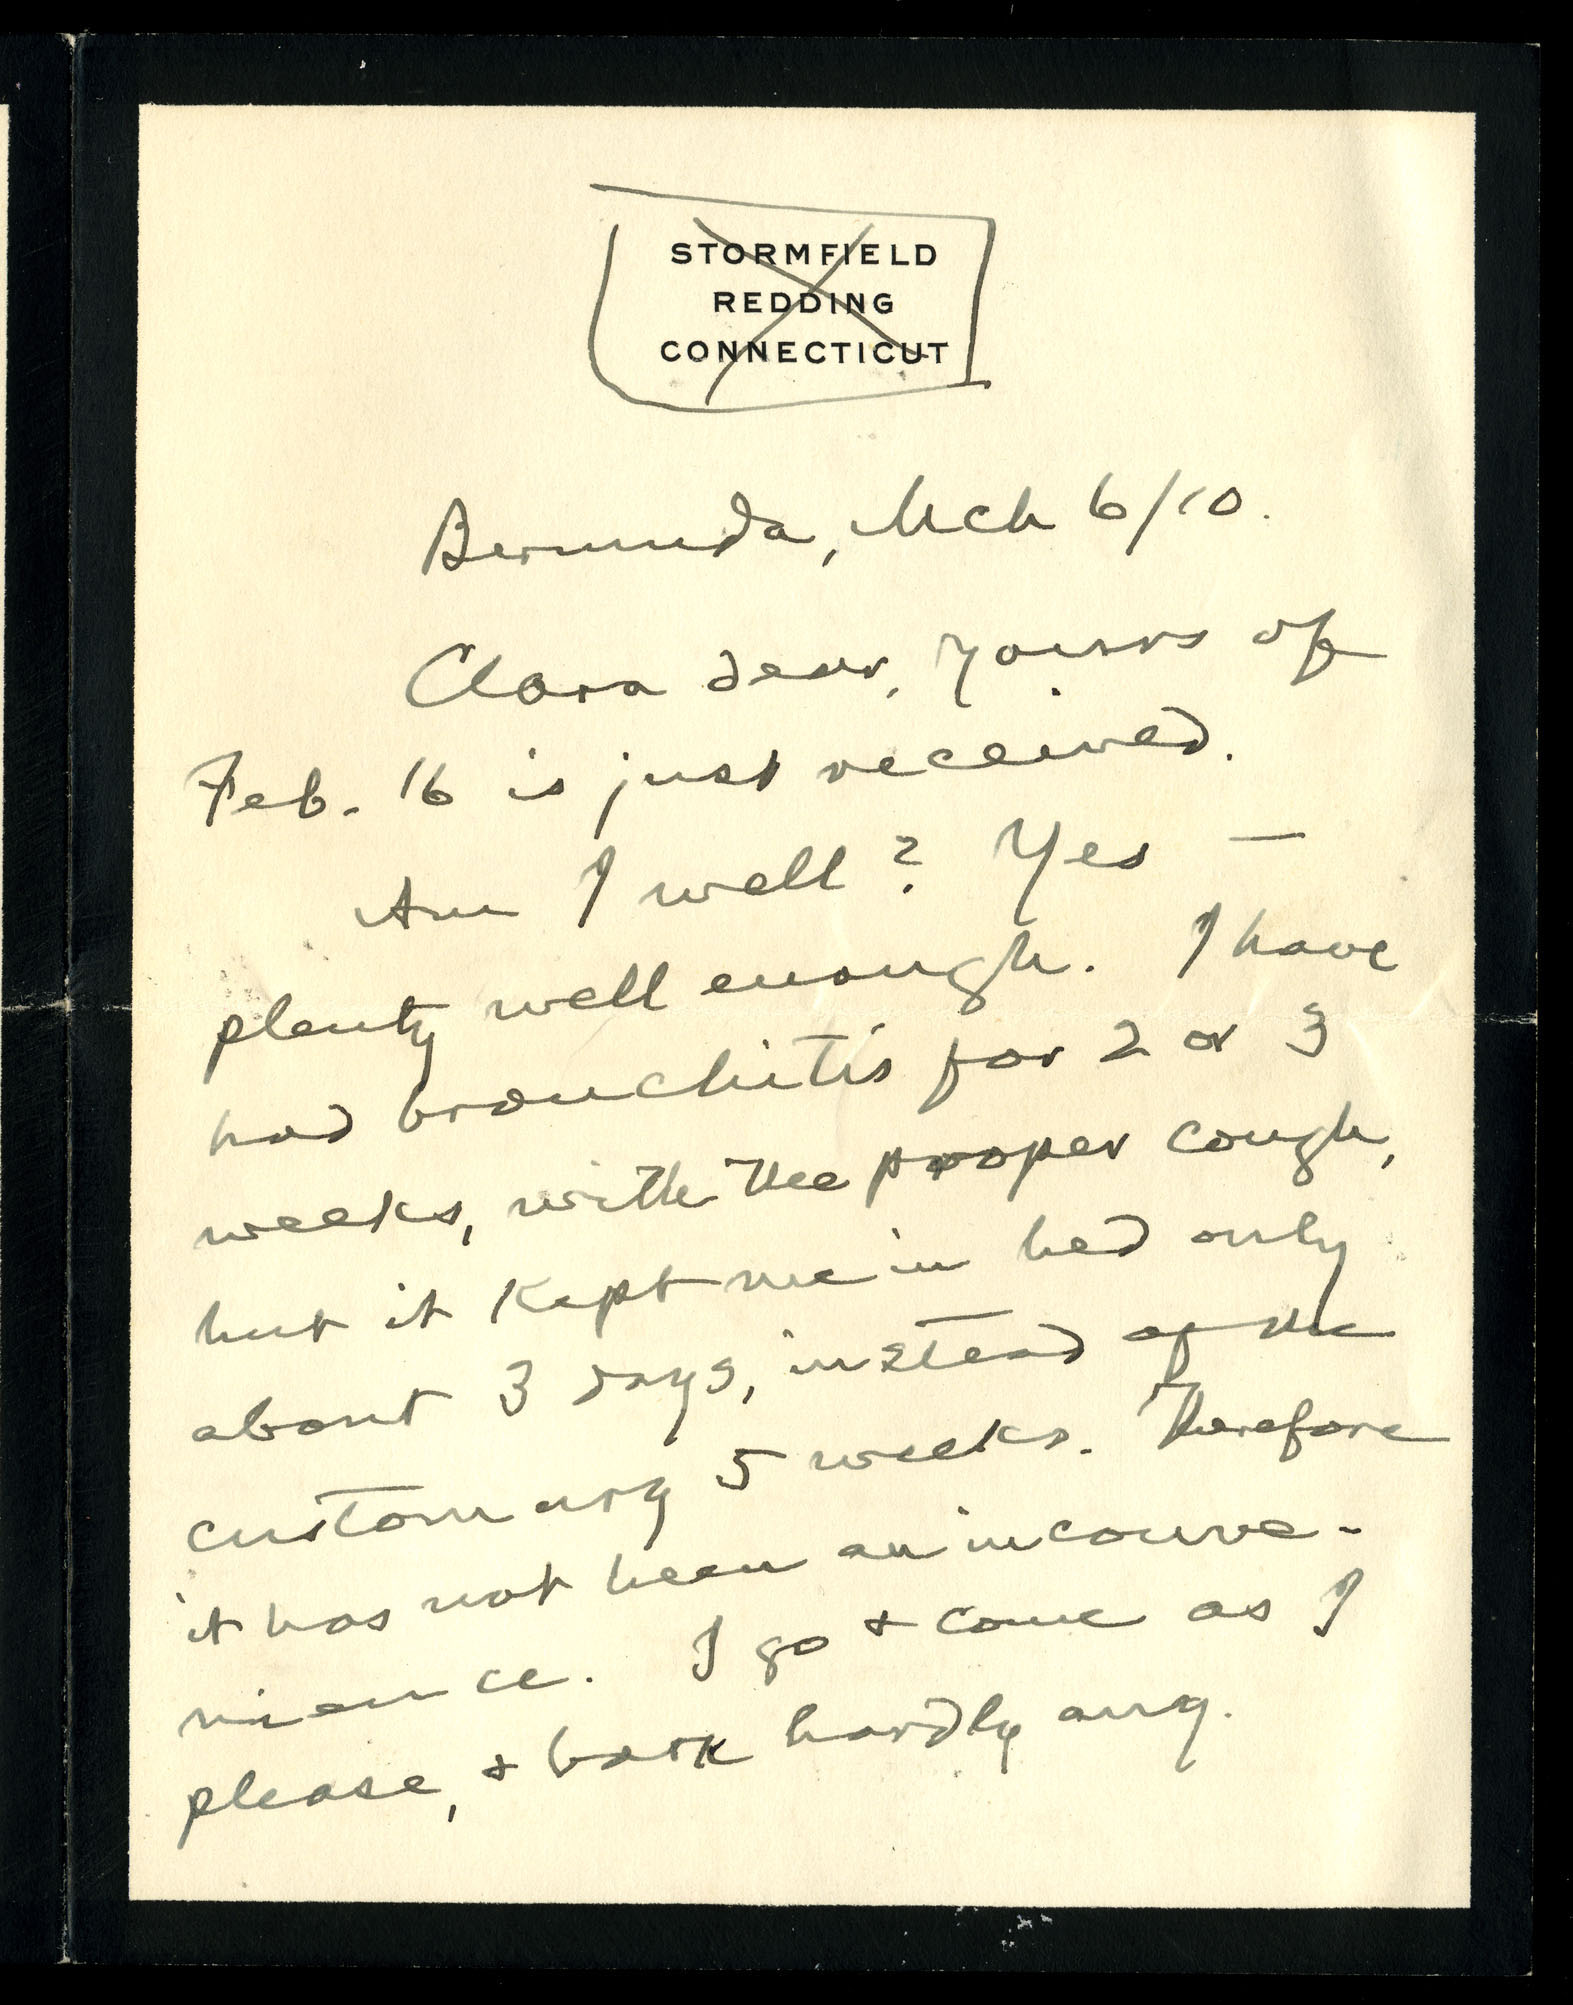 STORMFIELD
REDDING
CONNECTICUT
Bermuda, Mch 6/10.
Clara dear, yours of
Feb. 16 is just received.
Am I well? Yes —
plenty well enough. I have
had bronchitis for 2 or 3
weeks, with the proper cough,
but it kept me in bed only
about 3 days, instead of the
customary 5 weeks. Therefore
it has not been an inconve-
nience. I go & come as I
please, & bark hardly any.